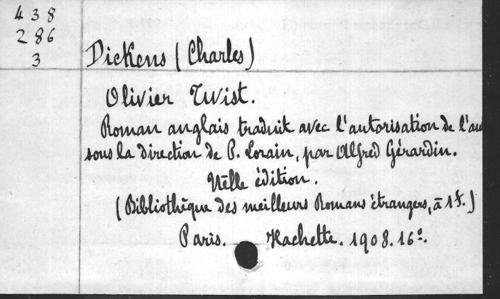 438
286
3
Dickens (Charles)
Olivier Twist.
Roman anglais traduit avec l'autorisation de l'au
sous la direction de P. Lorain, par Alfred Gérardin.
Nelle édition.
(Bibliothèque des meilleurs Romans étrangers, à 1 f.)
Paris. Hachette. 1908. 16º.